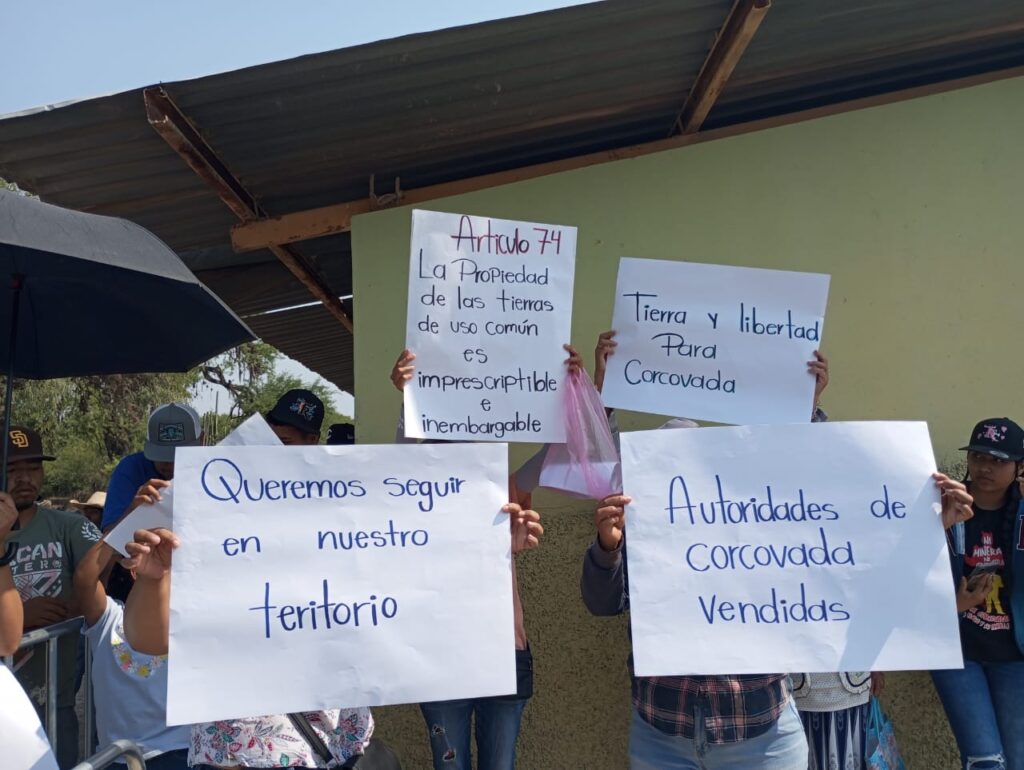 Artículo 74
La Propiedad
de las tierras
de uso común
es
imprescriptible
e
inembargable
Tierra y libertad
Para
Corcovada
Queremos seguir
en nuestro
territorio
Autoridades de
corcovada
Vendidas
SD
CAN
TERO
NI
MINERA
NI